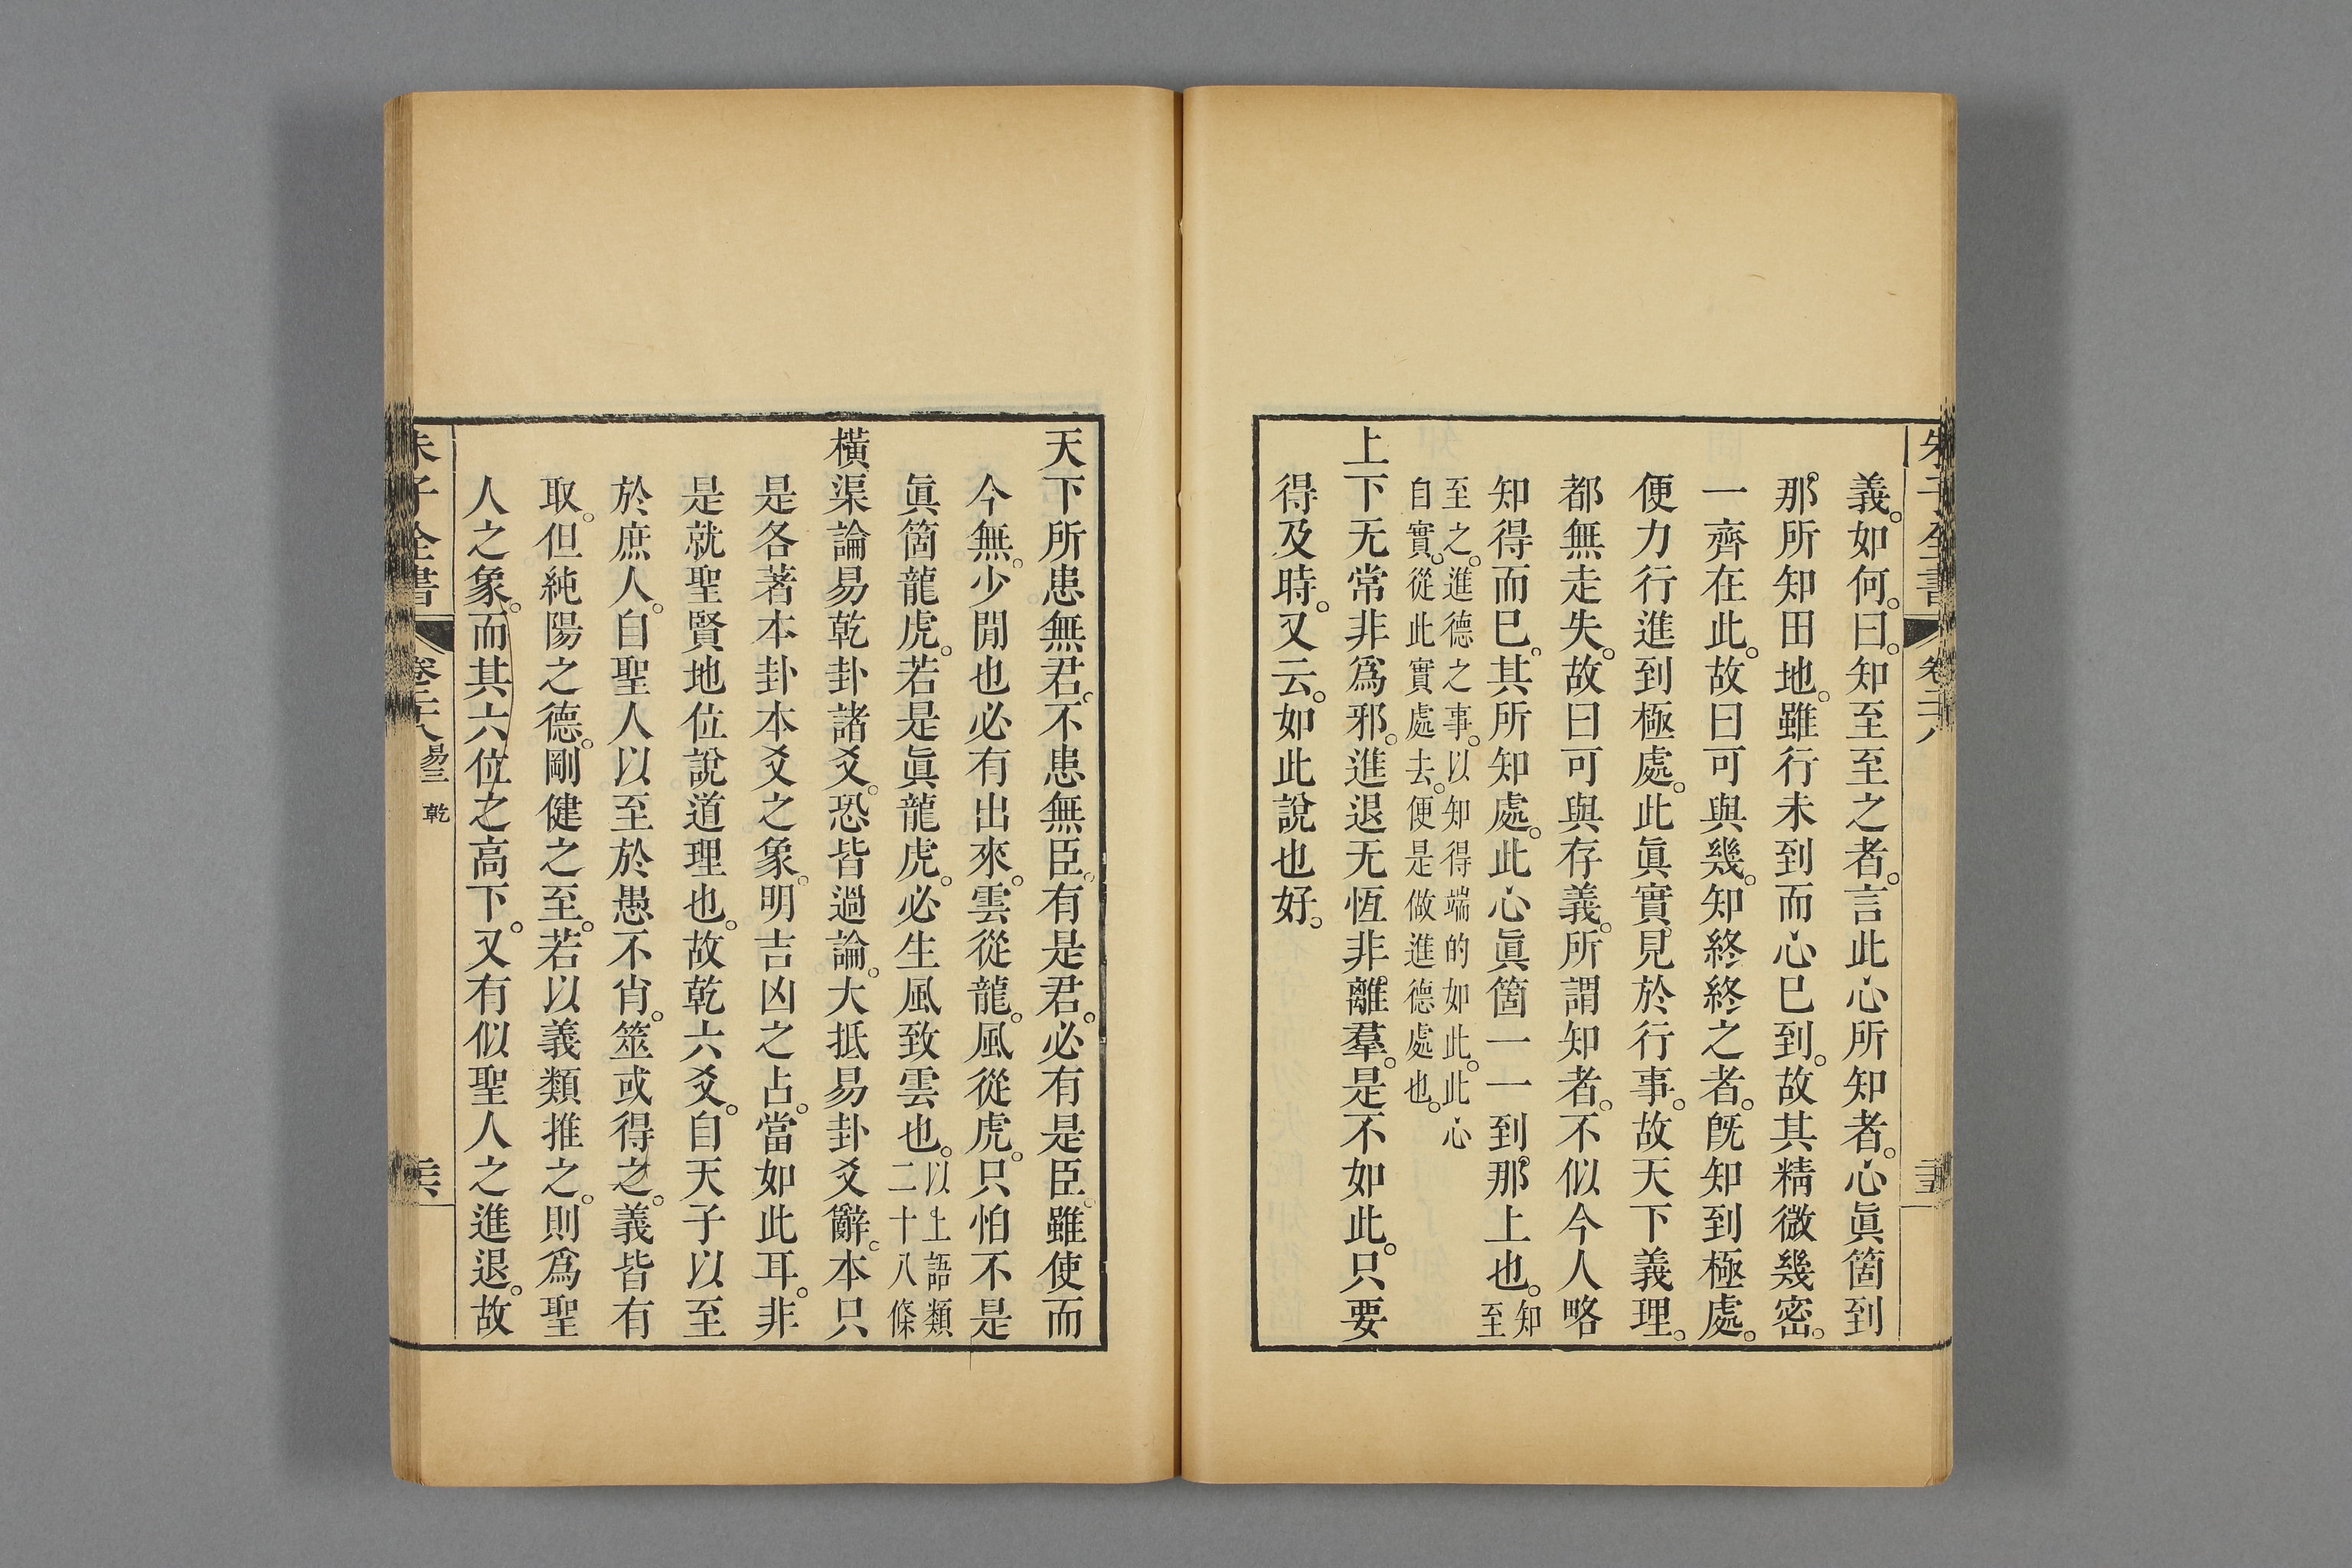 朱子全書 卷二十八 二十五
義。如何。曰。知至至之者。言此心所知者。心眞箇到
那所知田地。雖行未到而心已到。故其精微幾密。
一齊在此。故曰可與幾。知終終之者。旣知到極處。
便力行進到極處。此眞實見於行事。故天下義理。
都無走失。故曰可與存義。所謂知者。不似今人略
知得而已。其所知處。此心眞箇一一到那上也。知至
至之。進德之事。以知得端的如此。此心
自實。從此實處去。便是做進德處也。
上下无常非爲邪。進退无恆非離羣。是不如此。只要
得及時。又云。如此說也好。
天下所患無君。不患無臣。有是君。必有是臣。雖使而
今無。少閒也必有出來。雲從龍。風從虎。只怕不是
眞箇龍虎。若是眞龍虎。必生風致雲也。以上語類二十八條
橫渠論易乾卦諸爻。恐皆過論。大抵易卦爻辭。本只
是各著本卦本爻之象。明吉凶之占。當如此耳。非
是就聖賢地位說道理也。故乾六爻。自天子以至
於庶人。自聖人以至於愚不肖。筮或得之。義皆有
取。但純陽之德。剛健之至。若以義類推之。則爲聖
人之象。而其六位之高下。又有似聖人之進退。故
朱子全書 卷二十八 易三 乾 二十六